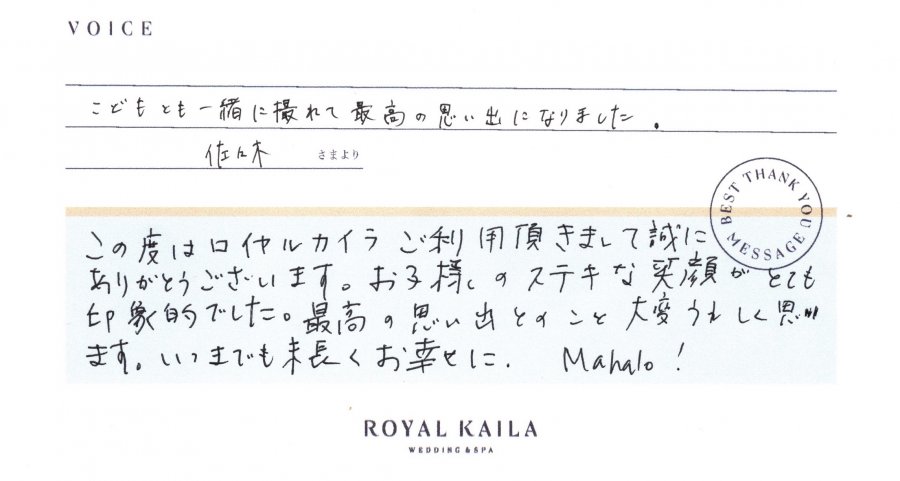 VOICE
こどもとも一緒に撮れて最高の思い出になりました.
佐々木 さまより
BEST THANK YOU MESSAGE
この度はロイヤルカイラ ご利用頂きまして誠に
ありがとうございます。お子様のステキな笑顔がとても
印象的でした。最高の思い出とのこと大変うれしく思い
ます。いつまでも末長くお幸せに. Mahalo!
ROYAL KAILA
WEDDING & SPA